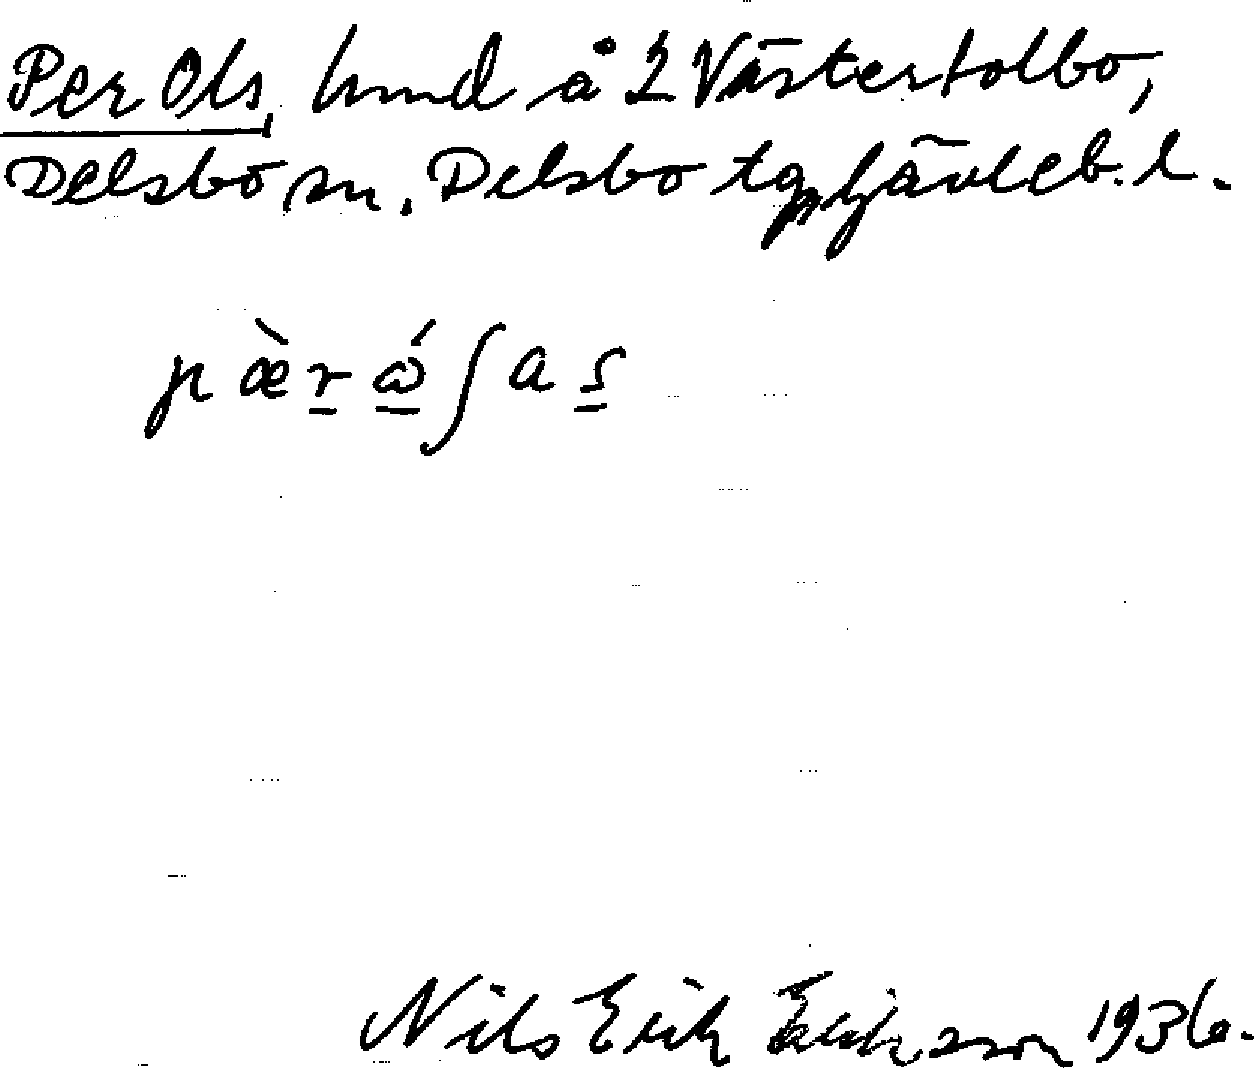 Per Ols, hmd å 2 Västertolbo,
Delsbo sn. Delsbo tg, Gävleb. l.
pæ̀r̲ώ̲ʃas̲
Nils Erik 1936.